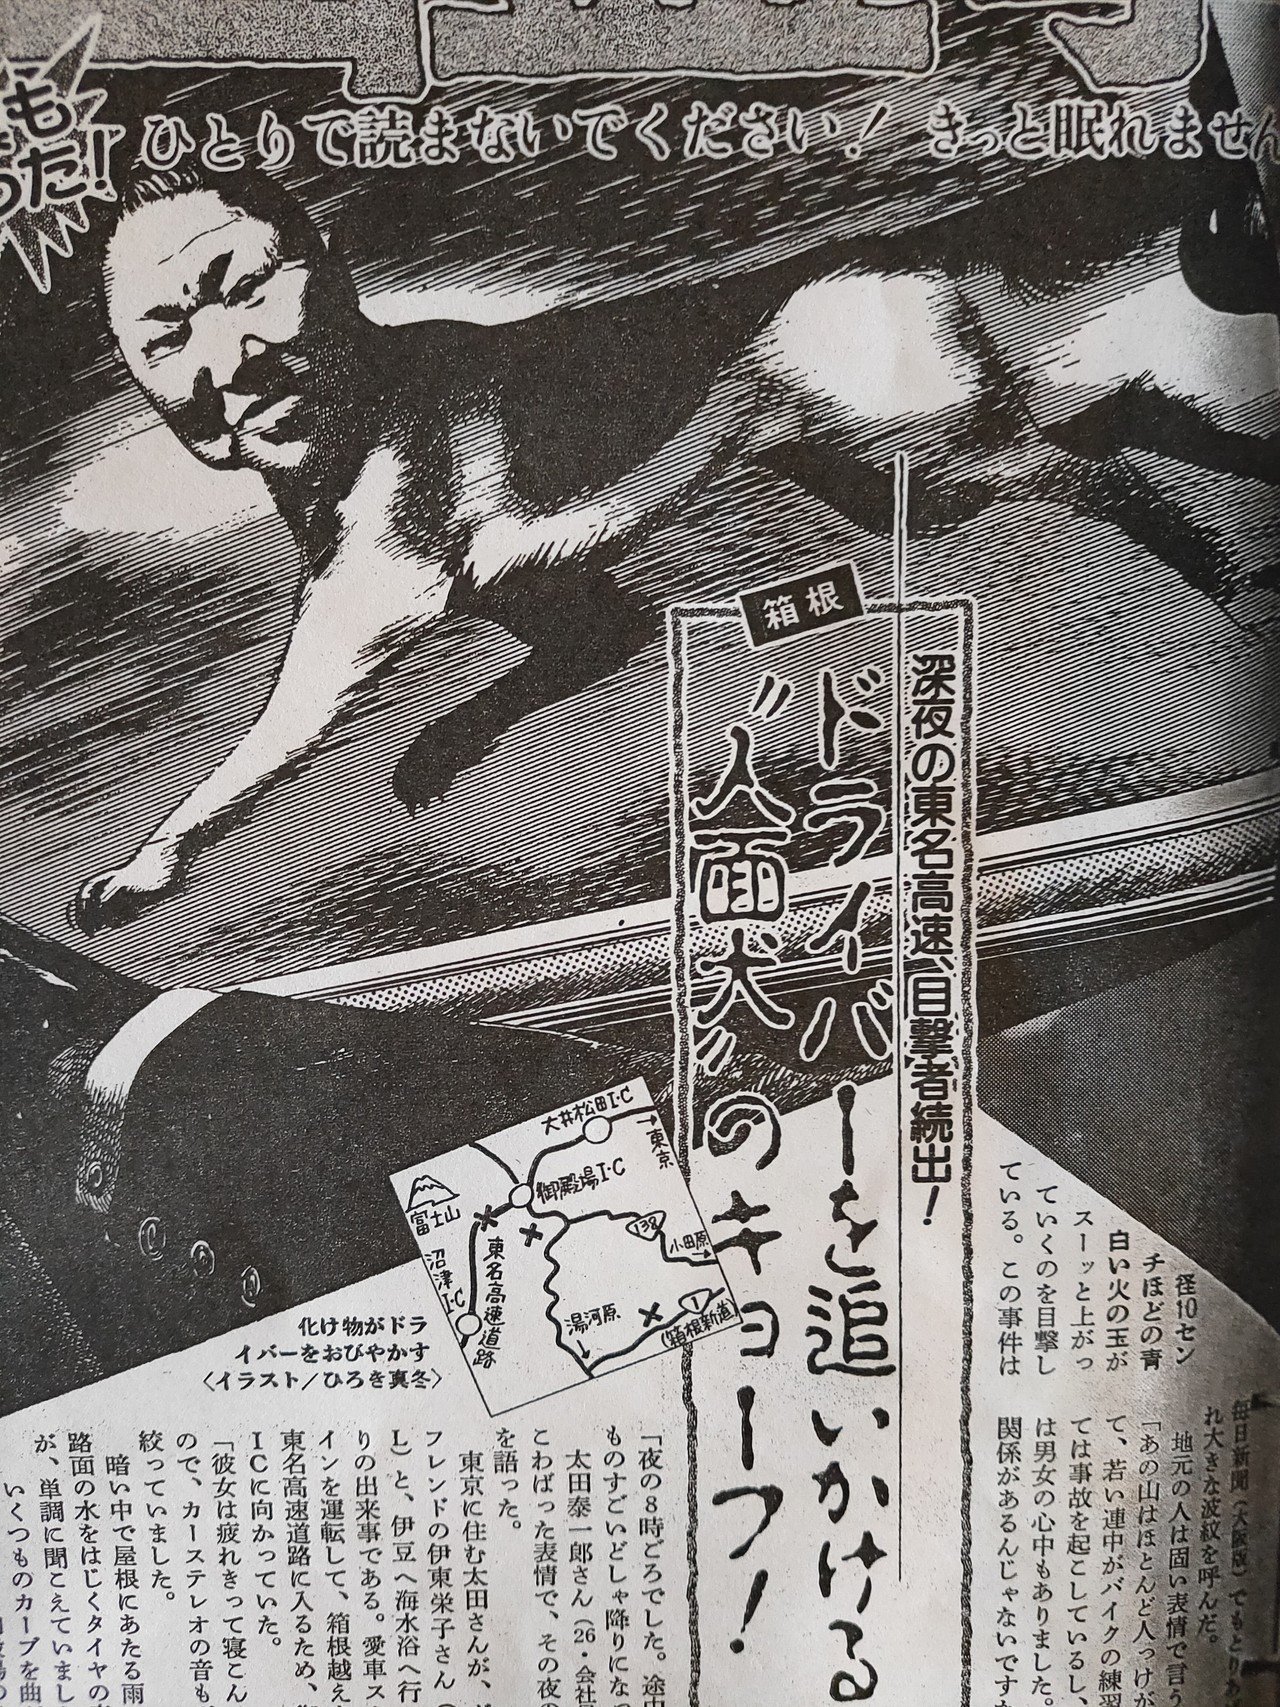 も
った!
ひとりで読まないでください! きっと眠れません
箱根
深夜の東名高速、目撃者続出!
ドライバーを追いかける
〝人面犬〟のキョーフ!
大井松田I・C
→東京
御殿場I・C
富士山
138
小田原
沼津I・C
東名高速道路
湯河原
1
(箱根新道)
化け物がドラ
イバーをおびやかす
〈イラスト/ひろき真冬〉
径10セン
チほどの青
白い火の玉が
スーッと上がっ
ていくのを目撃し
ている。この事件は
毎日新聞(大阪版)でもとりあ
れ大きな波紋を呼んだ。
地元の人は固い表情で言う
「あの山はほとんど人っけが
て、若い連中がバイクの練習
ては事故を起こしているし、
は男女の心中もありました。
関係があるんじゃないですか
「夜の8時ごろでした。途中
ものすごいどしゃ降りになっ
太田泰一郎さん(26・会社員
こわばった表情で、その夜の
を語った。
東京に住む太田さんが、ガ
フレンドの伊東栄子さん(
L)と、伊豆へ海水浴へ行
りの出来事である。愛車ス
インを運転して、箱根越え
東名高速道路に入るため、
ICに向かっていた。
「彼女は疲れきって寝こん
ので、カーステレオの音も
絞っていました。
暗い中で屋根にあたる雨
路面の水をはじくタイヤの
が、単調に聞こえていまし
いくつものカーブを曲